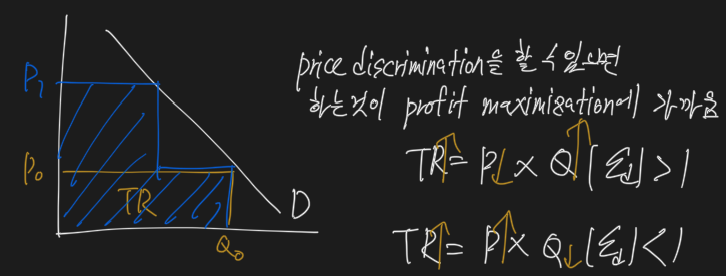 P₁
P₀
TR
Q₀
D
price discrimination을 할 수 있으면
하는 것이 profit maximization에 가까움
TR↑ = P↓ × Q↑ (Ed) > 1
TR↑ = P↑ × Q↓ (Ed) < 1